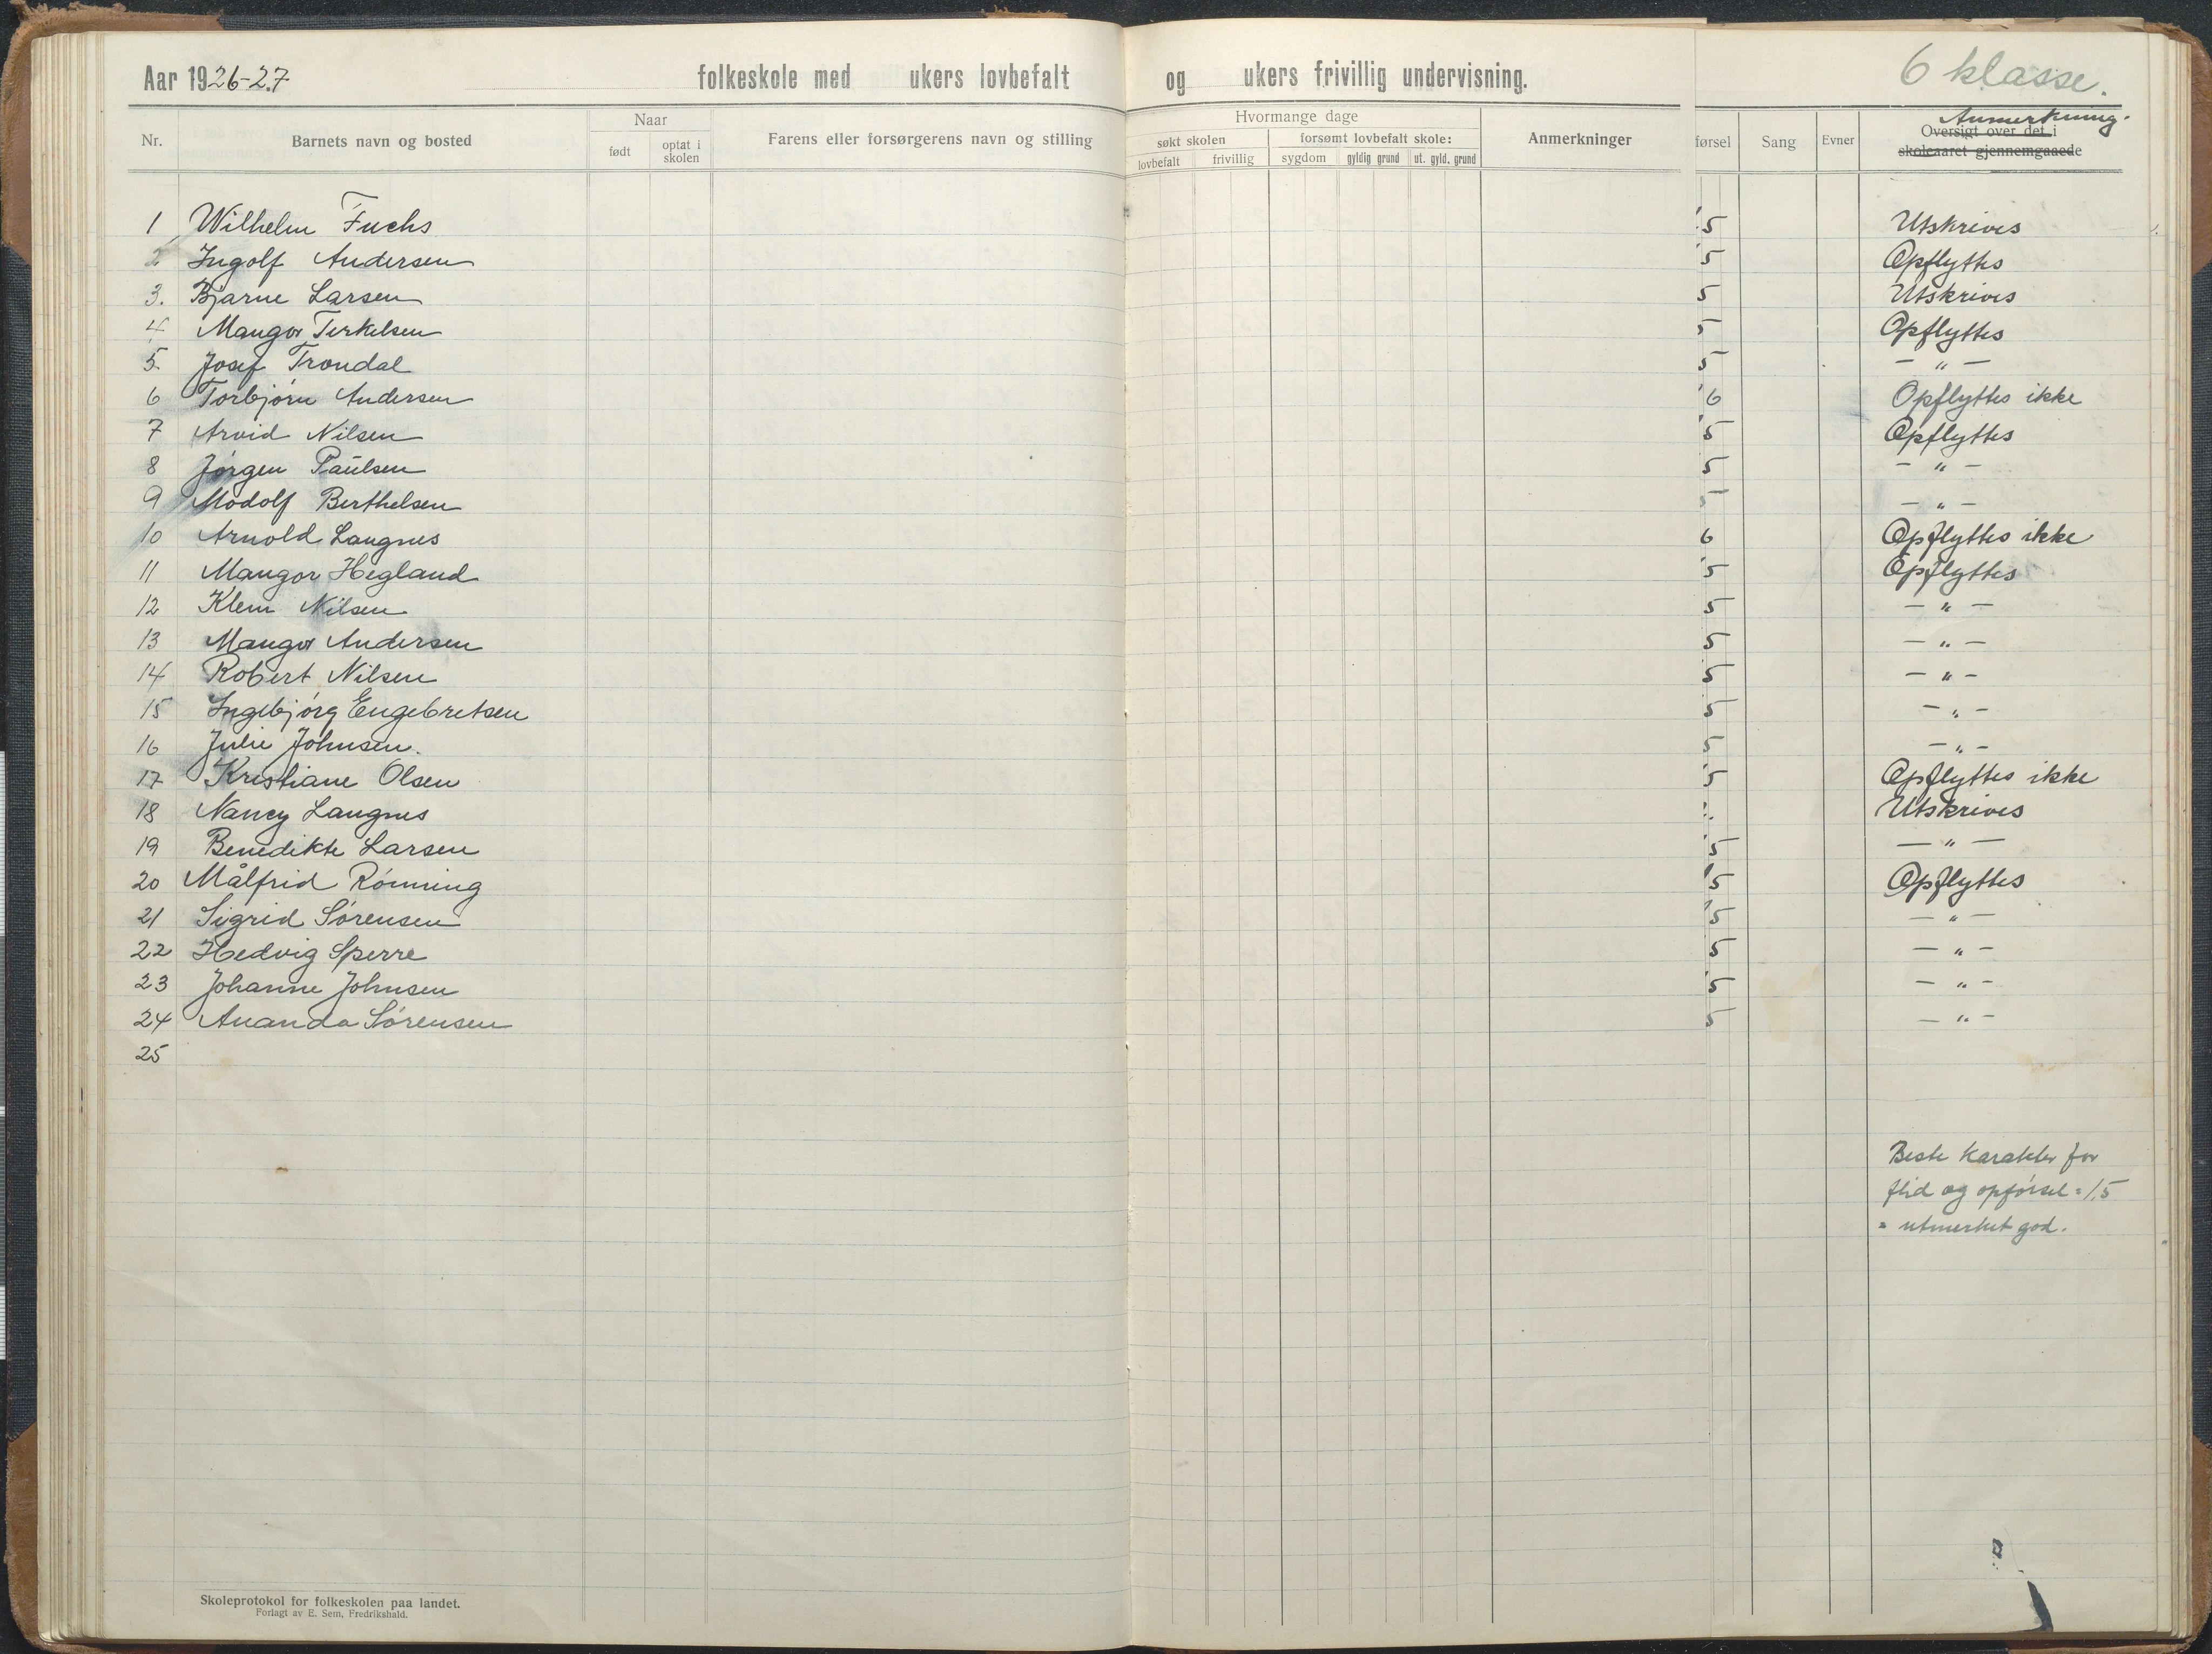 Aar 1926-27 folkeskole med ukers lovbefalt og ukers frivillig undervisning. 6 klasse.
Nr. Barnets navn og bosted Naar født optat i skolen Farens eller forsørgerens navn og stilling Hvormange dage søkt skolen lovbefalt frivillig forsømt lovbefalt skole: sygdom gyldig grund ut. gyld. grund Anmerkninger førsel Sang Evner Anmerkning.
Oversigt over det i
skoleaaret gjennemgaaede
1 Wilhelm Fuchs 5 Utskrives
2 Ingolf Andersen 5 Opflyttes
3. Bjarne Larsen 5 Utskrives
4 Mangor Terkelsen 5 Opflyttes
5. Josef Trondal 5 – " –
6 Torbjørn Andersen 6 Opflyttes ikke
7 Arvid Nilsen 5 Opflyttes
8 Jørgen Paulsen 5 – " –
9 Modolf Berthelsen 5 – " –
10 Arnold Langnes 6 Opflyttes ikke
11 Mangor Hegland 5 Opflyttes
12 Klem Nilsen 5 – " –
13 Mangor Andersen 5 – " –
14 Robert Nilsen 5 – " –
15 Ingebjørg Engebretsen 5 – " –
16 Julie Johnsen. 5 – " –
17 Kristiane Olsen 5 Opflyttes ikke
18 Nancy Langnes Utskrives
19 Benedikte Larsen 5 – " –
20 Målfrid Rønning 5 Opflyttes
21 Sigrid Sørensen 5 – " –
22 Hedvig Sperre 5 – " –
23 Johanne Johnsen 5 – " –
24 Ananda Sørensen 5 – " –
25
Beste karakter for
flid og opførsel = 1,5
= utmerket god.
Skoleprotokol for folkeskolen paa landet.
Forlagt av E. Sem, Fredrikshald.